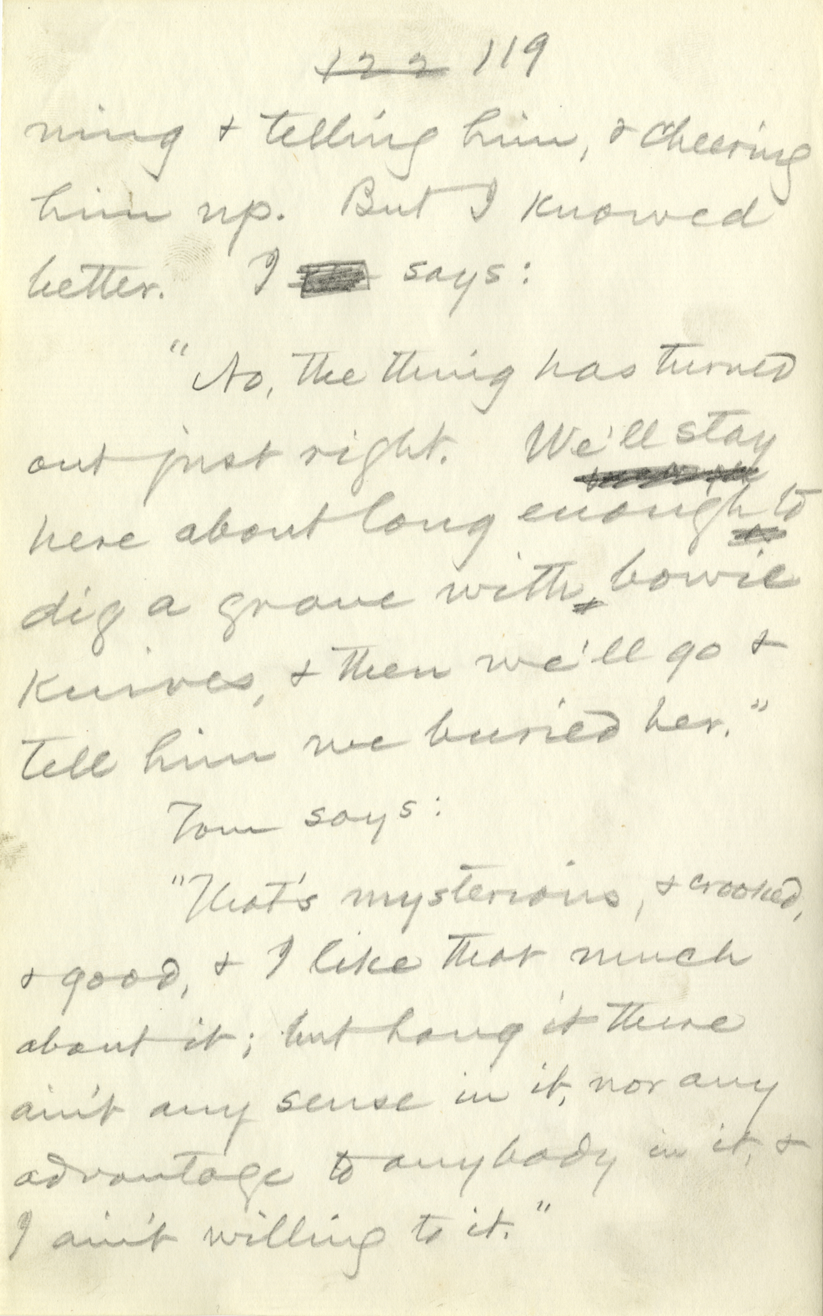 122 119
ning & telling him, & cheering
him up. But I knowed
better. I says:
"No, the thing has turned
out just right. We'll stay
here about long enough to
dig a grave with bowie
knives, & then we'll go &
tell him we buried her."
Tom says:
"That's mysterious, & crooked,
& good, & I like that much
about it; but hang it there
ain't any sense in it, nor any
advantage to anybody in it, &
I ain't willing to it."